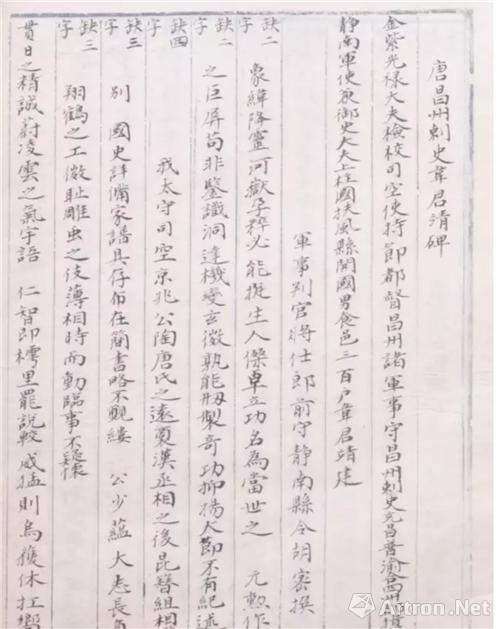 唐昌州刺史韋君靖碑
金紫光祿大夫檢校司空使持節都督昌州諸軍事守昌州刺史充昌普渝
靜南軍使兼御史大夫上柱國扶風縣開國男食邑三百戶韋君靖建
軍事判官將仕郎前守靜南縣令胡密撰
缺二字 象緯降靈河嶽孕粹必能挺生人傑卓立功名為當世之 元勳作
缺二字 之巨屏苟非鑒識洞達機變玄微孰能刱製奇功抑揚大節不有紀述
缺四字 我太守司空京兆公陶唐氏之遠裔漢丞相之後昆簪組相
缺三字 別 國史詳備家譜具存布在簡書略不覼縷 公少蘊大志長負
缺三字 翔鶴之工微耻雕虫之伎薄相時而動臨事不疑懷
貫日之精誠蔚凌雲之氣宇語 仁智即樗里罷說較 威猛則烏獲休扛響
Artron.Net
雅昌艺术网